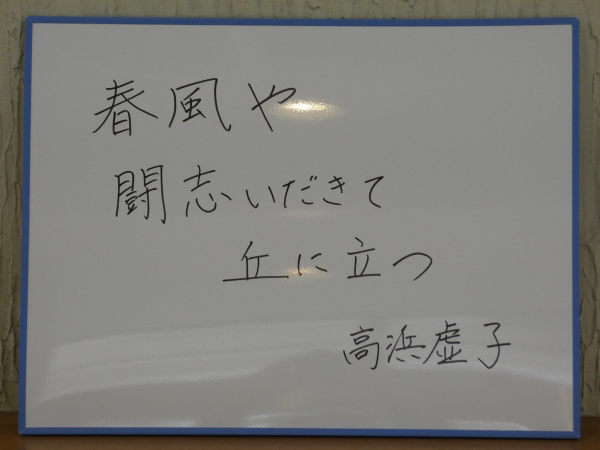 春風や
闘志いだきて
丘に立つ
高浜虚子